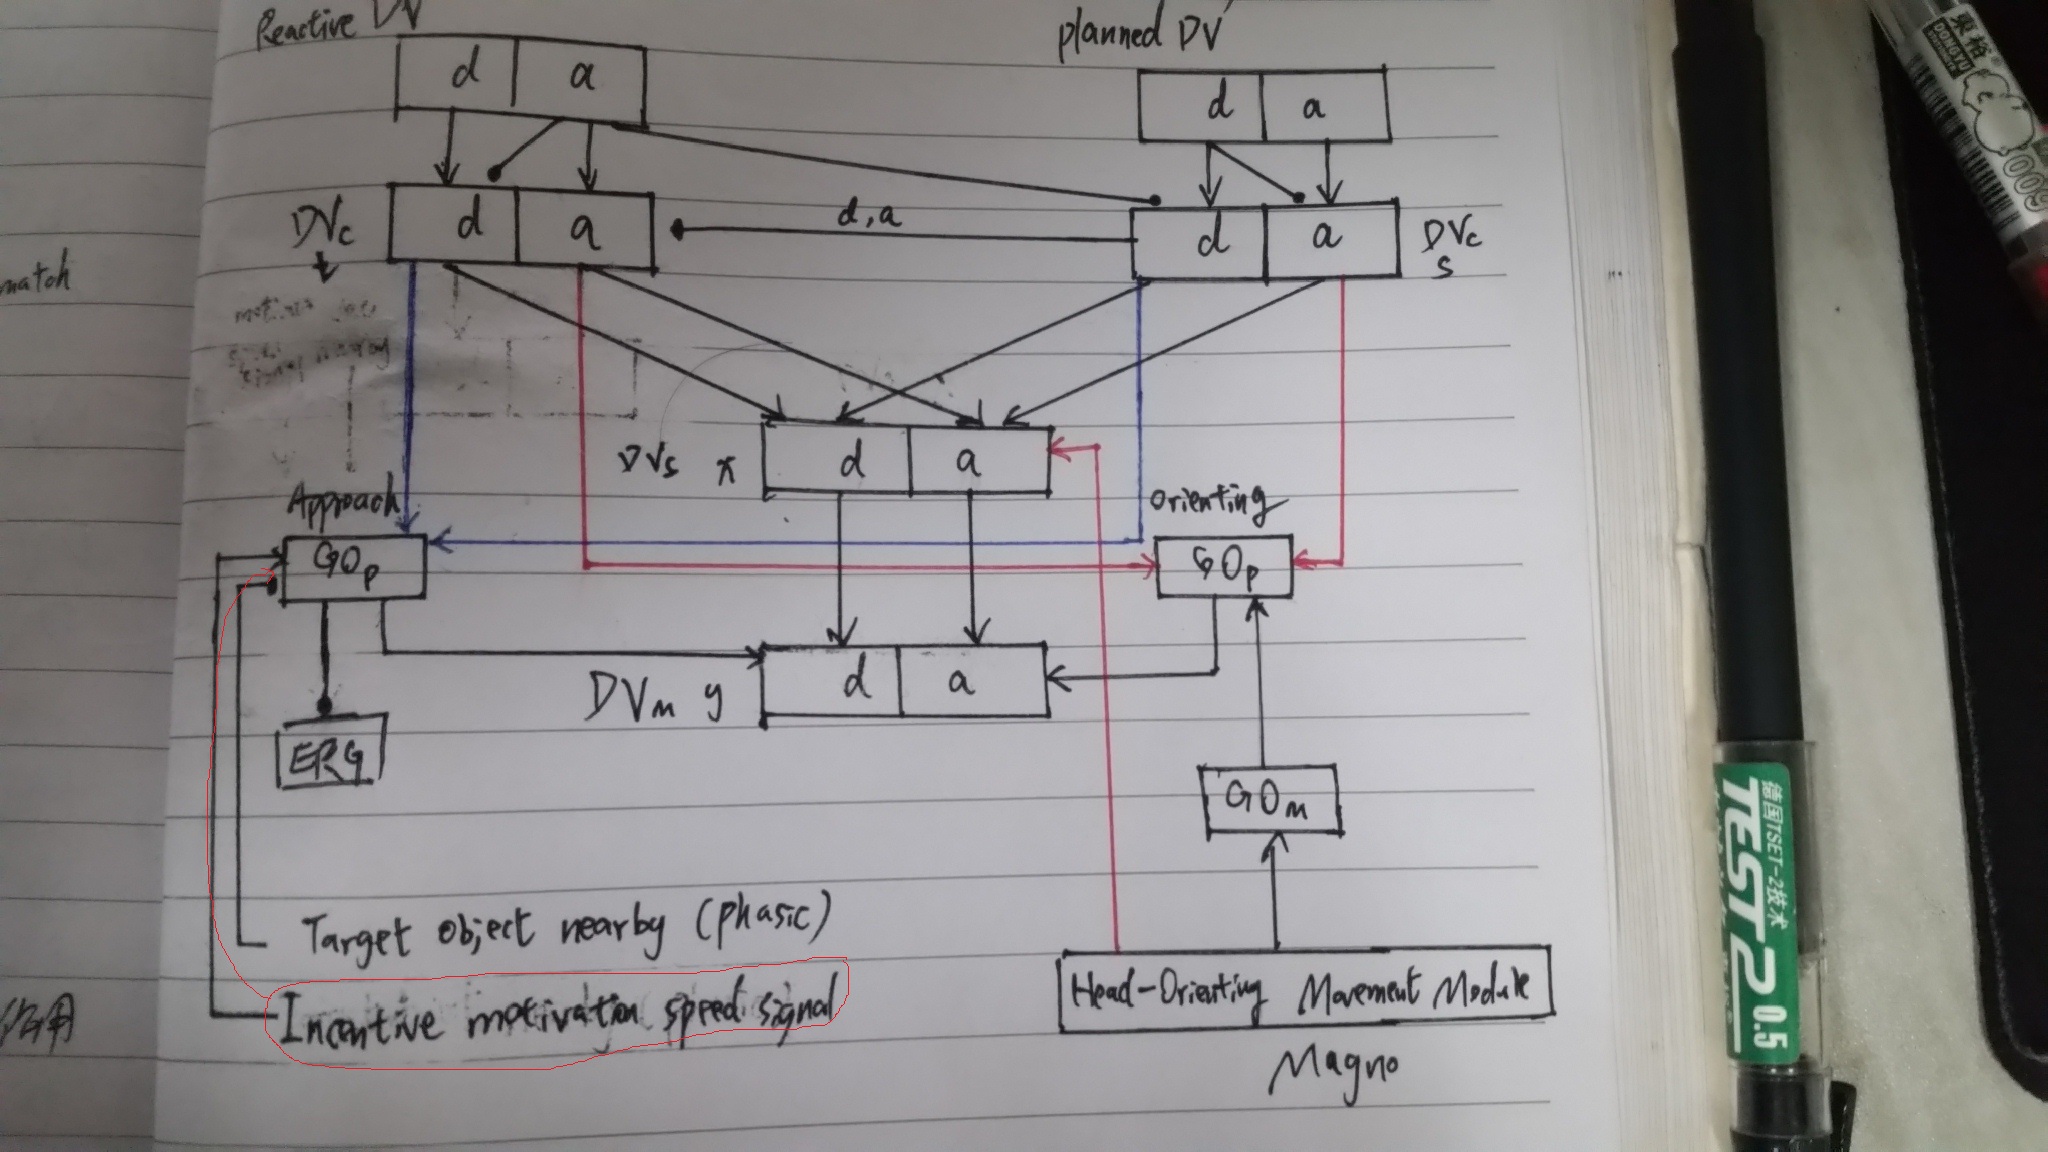 Reactive DV
planned DV
d a
d a
DVc
t
d a
d,a
d a
DVc
s
match
DVs x
d a
Approach
Orienting
GOp
GOp
DVm y
d a
ERG
GOm
Target object nearby (phasic)
Incentive motivation speed signal
Head-Orienting Movement Module
Magno
作用
DONGYU
0009
德国TSET-2技术
TEST2 0.5